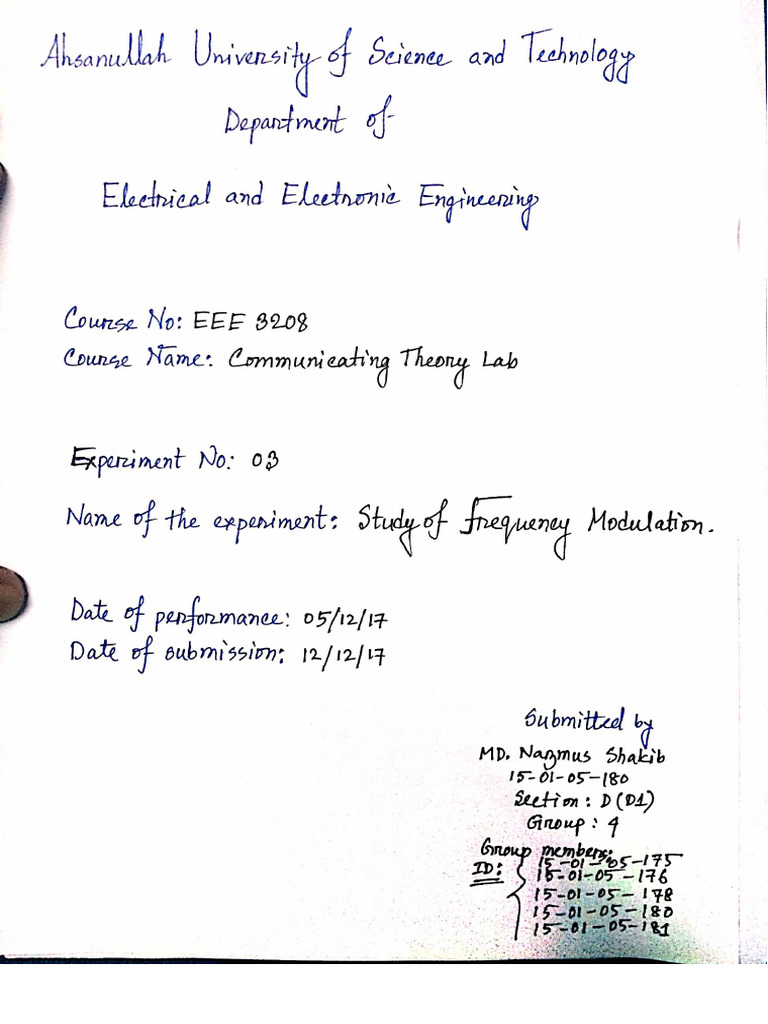 Ahsanullah University of Science and Technology
Department of
Electrical and Electronic Engineering
Course No: EEE 3208
Course Name: Communicating Theory Lab
Experiment No: 03
Name of the experiment: Study of Frequency Modulation.
Date of performance: 05/12/17
Date of submission: 12/12/17
Submitted by
MD. Nazmus Shakib
15-01-05-180
Section: D (D1)
Group: 4
Group members:
ID: 15-01-05-175
15-01-05-176
15-01-05-178
15-01-05-180
15-01-05-181